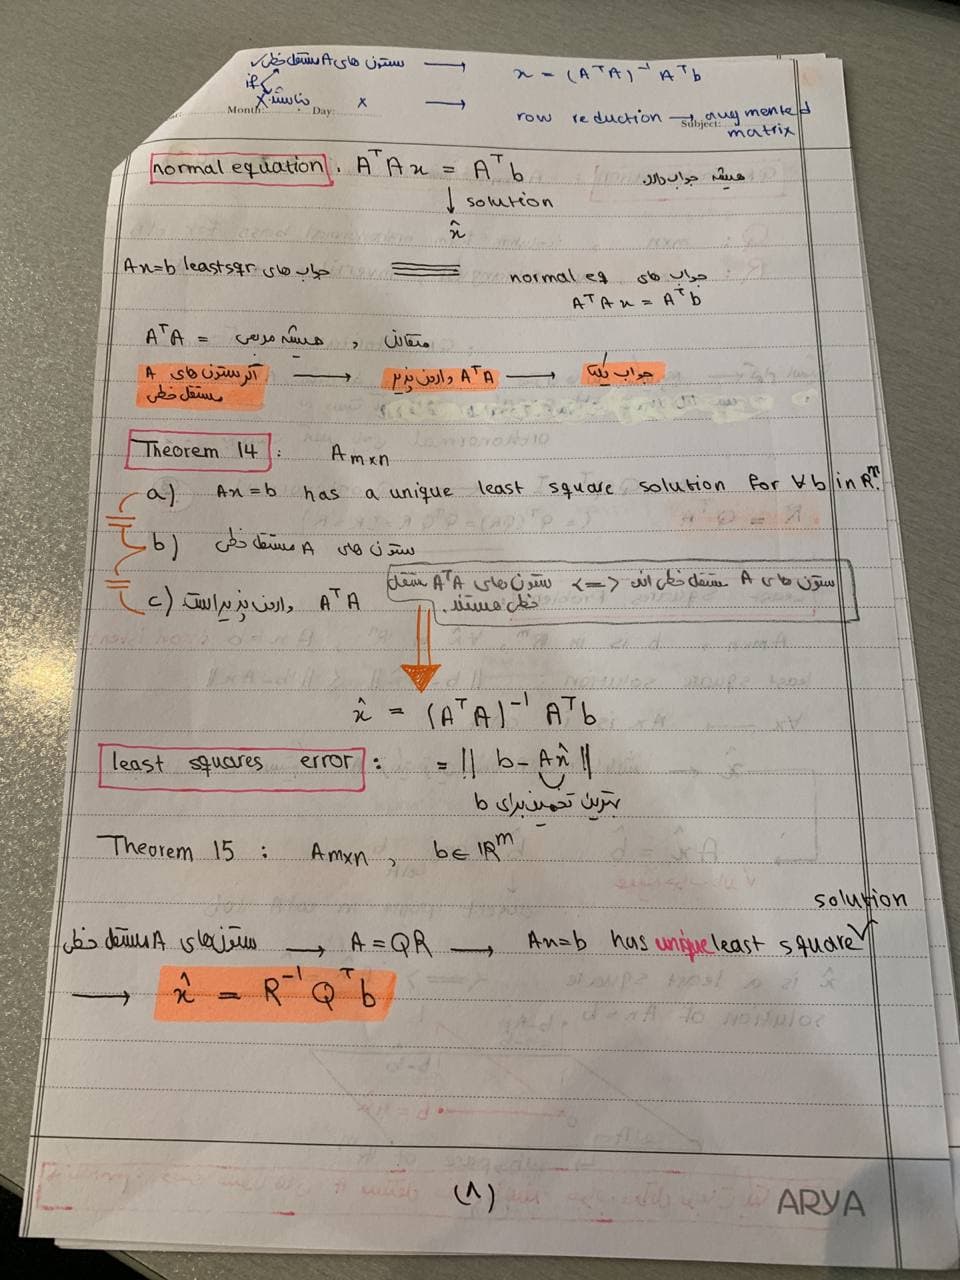 ستون های A مستقل خطی ✓ → x = (AᵀA)⁻¹ Aᵀb
if
نباشند x x → row reduction → augmented matrix
Month: Day: Subject:
normal equation : AᵀAx = Aᵀb همیشه جواب دارد
↓ solution
x̂
Ax=b leastsqr جواب های ≡ normal eq جواب های
AᵀAx = Aᵀb
AᵀA = همیشه مربعی , متقارن
اگر ستون های A مستقل خطی → AᵀA وارون پذیر → جواب یکتا
Theorem 14 : Amxn
a) Ax=b has a unique least square solution for ∀b in ℝᵐ.
b) ستون های A مستقل خطی
ستون های A مستقل خطی اند <=> ستون های AᵀA مستقل خطی هستند.
c) AᵀA وارون پذیر است
x̂ = (AᵀA)⁻¹ Aᵀb
least squares error : = || b - Ax̂ ||
بهترین تخمین برای b
Theorem 15 : Amxn , b∈ℝᵐ
solution
ستون های A مستقل خطی → A = QR → Ax=b has unique least square
→ x̂ = R⁻¹ Qᵀ b
(۸)
ARYA